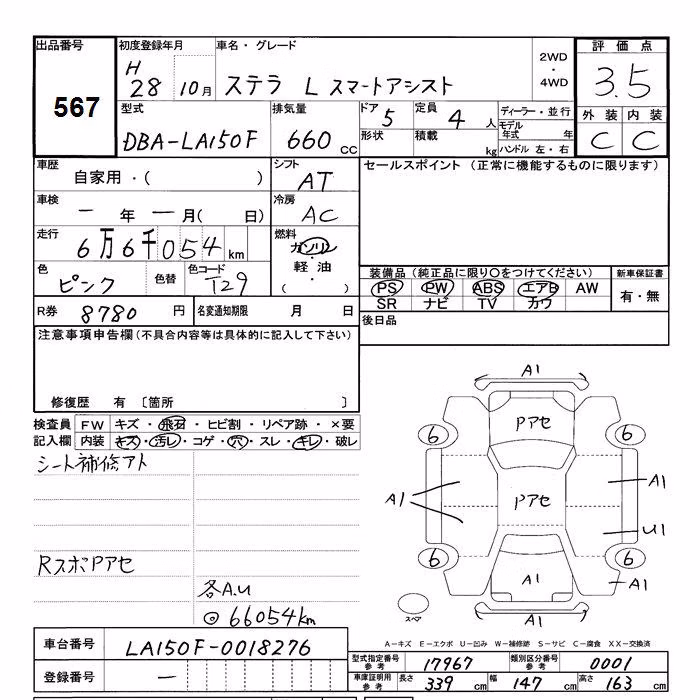 出品番号
567
初度登録年月
H
28 10月
車名・グレード
ステラ L スマートアシスト
2WD
・
4WD
評価点
3.5
外装 内装
C C
型式
DBA-LA150F
排気量
660 CC
ドア 5
形状
定員 4 人
積載 kg
ディーラー・並行
モデル年式 年
ハンドル 左・右
車歴
自家用・( )
シフト
AT
セールスポイント (正常に機能するものに限ります)
車検
一 年 一 月( 日)
冷房
AC
走行
6万6千054 km
燃料
ガソリン
軽油
( )
色
ピンク
色替
色コード
T29
装備品(純正品に限り○をつけてください)
PS PW ABS エアB AW
SR ナビ TV カワ
新車保証書
有・無
R券 8780 円
名変通知期限 月 日
後日品
注意事項申告欄(不具合内容等は具体的に記入して下さい)
修復歴 有 〔箇所 〕
検査員 FW キズ・飛石・ヒビ割・リペア跡・×要
記入欄 内装 キズ・汚レ・コゲ・穴・スレ・キレ・破レ
シート補修アト
RスポPアセ
各A.U
◎ 66054km
A1
Pアセ
6 6
A1
Pアセ
A1
U1
6 6
A1
A1
A1
スペア
A-キズ E-エクボ U-凹み W-補修跡 S-サビ C-腐食 XX-交換済
車台番号 LA150F-0018276
登録番号 一
型式指定番号 参考 17967
類別区分番号 参考 0001
車庫証明用 参考 長さ 339 cm 幅 147 cm 高さ 163 cm